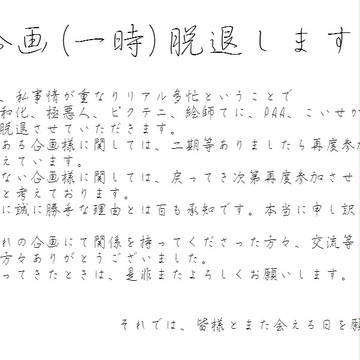 企画(一時)脱退します
、私事情が重なりリアル多忙ということで
和化、極悪人、ピクテニ、絵師てに、DAA、こいせか
脱退させていただきます。
ある企画様に関しては、二期等ありましたら再度参加
えています。
ない企画様に関しては、戻ってき次第再度参加させ
と考えております。
に誠に勝手な理由とは百も承知です。本当に申し訳
れの企画にて関係を持ってくださった方々、交流等
方々ありがとうございました。
ってきたときは、是非またよろしくお願いします。
それでは、皆様とまた会える日を願